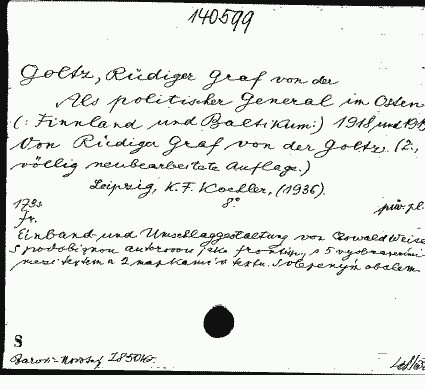 140599
Goltz, Rüdiger Graf von der
Als politischer General im Osten
(: Finnland und Baltikum:) 1918 und 1919
Von Rüdiger Graf von der Goltz. (2.,
völlig neubearbeitete Auflage.)
Leipzig, K.F. Koehler, (1936).
173s 8° pův.pl.
fr.
Einband und Umschlaggestaltung von Oswald Weise
S podobiznou autorovou jako frontisp., s 5 vyobrazeními
mezi textem a 2 mapkami v textu. S slepeným obalem.
S
2850Kr.